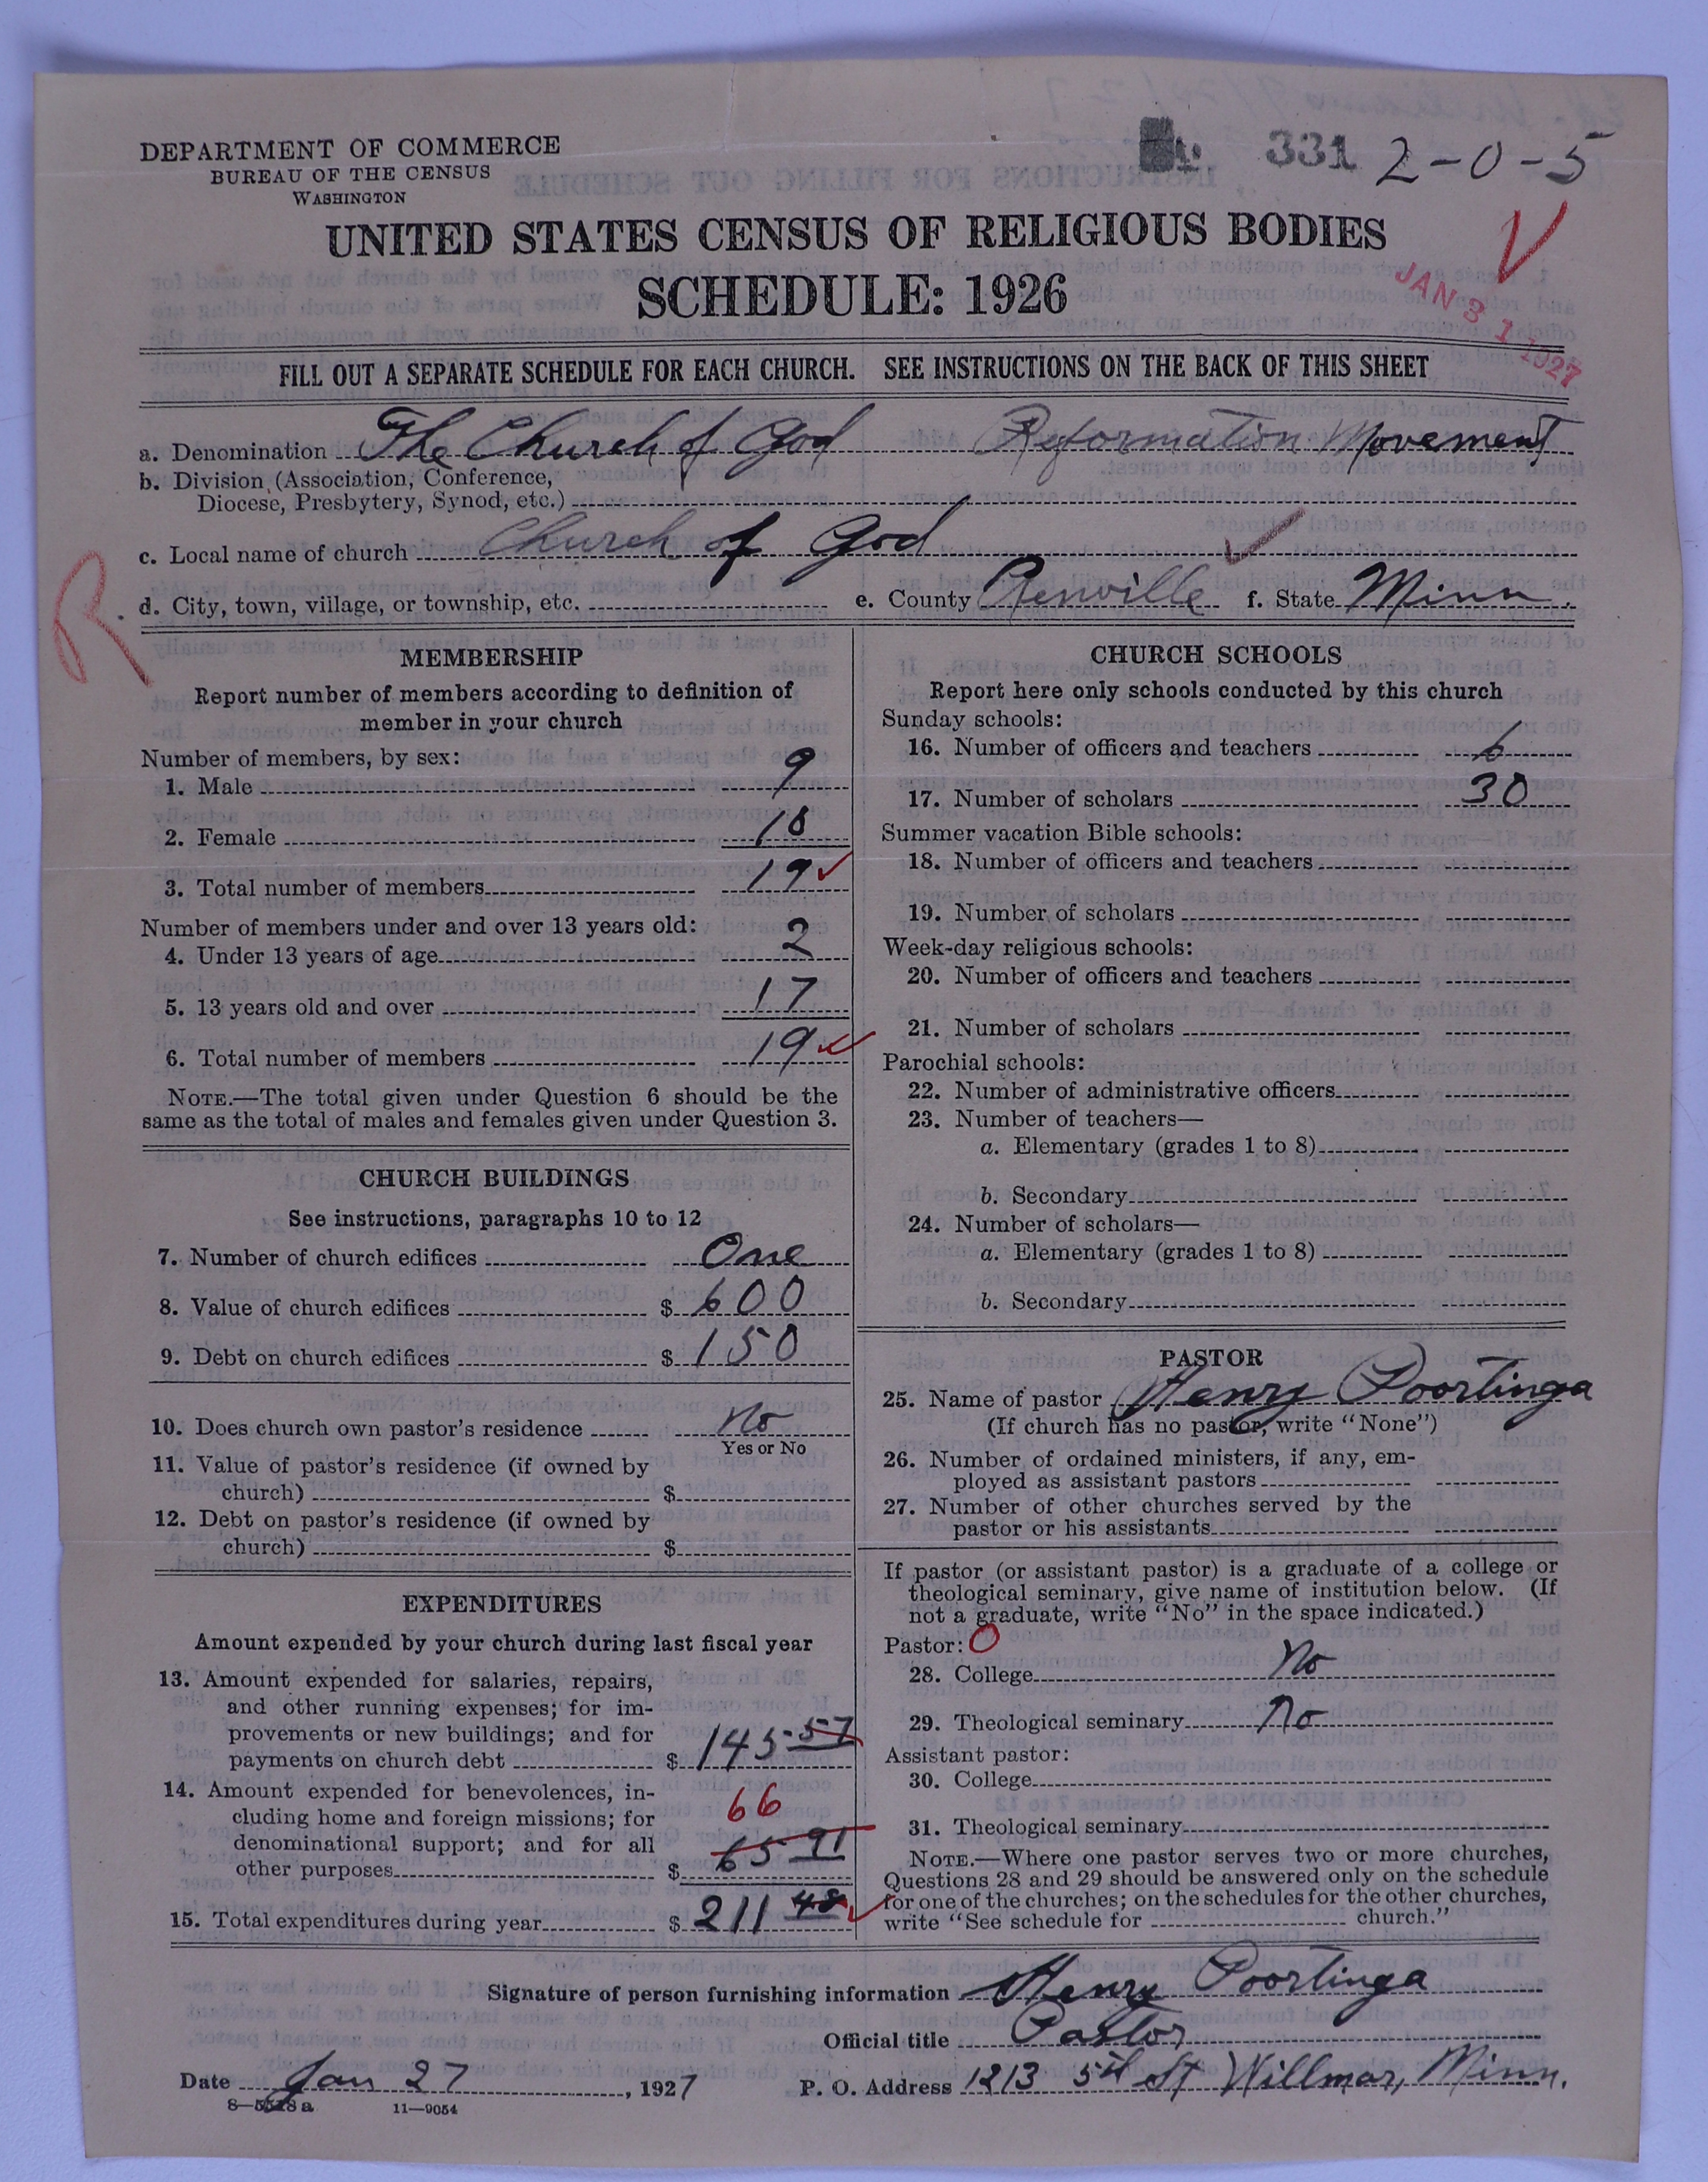 331 2-0-5
DEPARTMENT OF COMMERCE
BUREAU OF THE CENSUS
WASHINGTON
UNITED STATES CENSUS OF RELIGIOUS BODIES
SCHEDULE: 1926
JAN 31 1927
FILL OUT A SEPARATE SCHEDULE FOR EACH CHURCH. SEE INSTRUCTIONS ON THE BACK OF THIS SHEET
a. Denomination The Church of God Reformation Movement
b. Division (Association, Conference,
Diocese, Presbytery, Synod, etc.)
c. Local name of church Church of God
R
d. City, town, village, or township, etc. e. County Renville f. State Minn.
MEMBERSHIP
Report number of members according to definition of
member in your church
Number of members, by sex:
1. Male 9
2. Female 10
3. Total number of members 19
Number of members under and over 13 years old:
4. Under 13 years of age 2
5. 13 years old and over 17
6. Total number of members 19
NOTE.—The total given under Question 6 should be the
same as the total of males and females given under Question 3.
CHURCH BUILDINGS
See instructions, paragraphs 10 to 12
7. Number of church edifices One
8. Value of church edifices $ 600
9. Debt on church edifices $ 150
10. Does church own pastor's residence No
Yes or No
11. Value of pastor's residence (if owned by
church) $
12. Debt on pastor's residence (if owned by
church) $
EXPENDITURES
Amount expended by your church during last fiscal year
13. Amount expended for salaries, repairs,
and other running expenses; for im-
provements or new buildings; and for
payments on church debt $ 145 57
14. Amount expended for benevolences, in-
cluding home and foreign missions; for 66
denominational support; and for all 65 91
other purposes $
15. Total expenditures during year $ 211 48
CHURCH SCHOOLS
Report here only schools conducted by this church
Sunday schools:
16. Number of officers and teachers 6
17. Number of scholars 30
Summer vacation Bible schools:
18. Number of officers and teachers
19. Number of scholars
Week-day religious schools:
20. Number of officers and teachers
21. Number of scholars
Parochial schools:
22. Number of administrative officers
23. Number of teachers—
a. Elementary (grades 1 to 8)
b. Secondary
24. Number of scholars—
a. Elementary (grades 1 to 8)
b. Secondary
PASTOR
25. Name of pastor Henry Poortinga
(If church has no pastor, write "None")
26. Number of ordained ministers, if any, em-
ployed as assistant pastors
27. Number of other churches served by the
pastor or his assistants
If pastor (or assistant pastor) is a graduate of a college or
theological seminary, give name of institution below. (If
not a graduate, write "No" in the space indicated.)
Pastor: O
28. College No
29. Theological seminary No
Assistant pastor:
30. College
31. Theological seminary
NOTE.—Where one pastor serves two or more churches,
Questions 28 and 29 should be answered only on the schedule
for one of the churches; on the schedules for the other churches,
write "See schedule for church."
Signature of person furnishing information Henry Poortinga
Official title Pastor
Date Jan 27, 1927 P. O. Address 1213 5th St Willmar, Minn.
11—9054